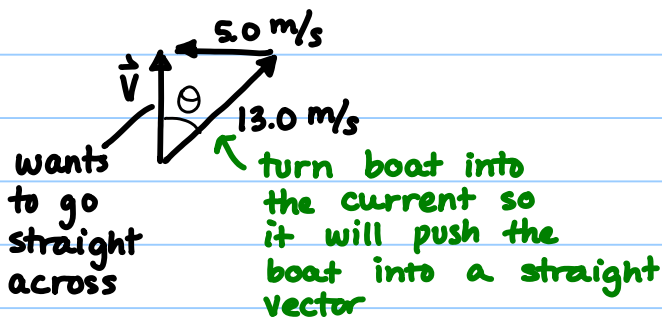 5.0 m/s
V⃗
θ
13.0 m/s
wants
to go
straight
across
turn boat into
the current so
it will push the
boat into a straight
vector